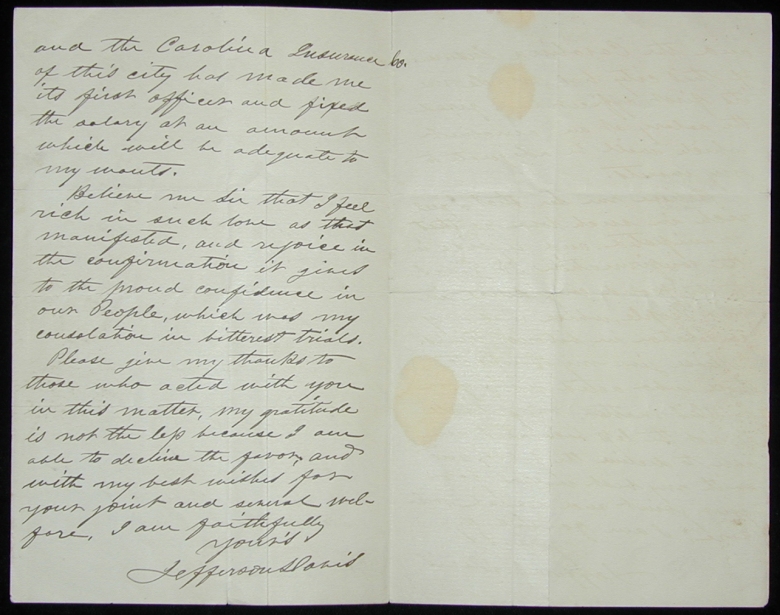 and the Carolina Insurance Co.
of this city has made me
its first officer and fixed
the salary at an amount
which will be adequate to
my wants.
Believe me Sir that I feel
rich in such love as that
manifested, and rejoice in
the confirmation it gives
to the proud confidence in
our People, which was my
consolation in bitterest trials.
Please give my thanks to
those who acted with you
in this matter, my gratitude
is not the less because I am
able to decline the favor, and
with my best wishes for
your joint and several wel-
fare, I am faithfully
Your's
Jefferson Davis